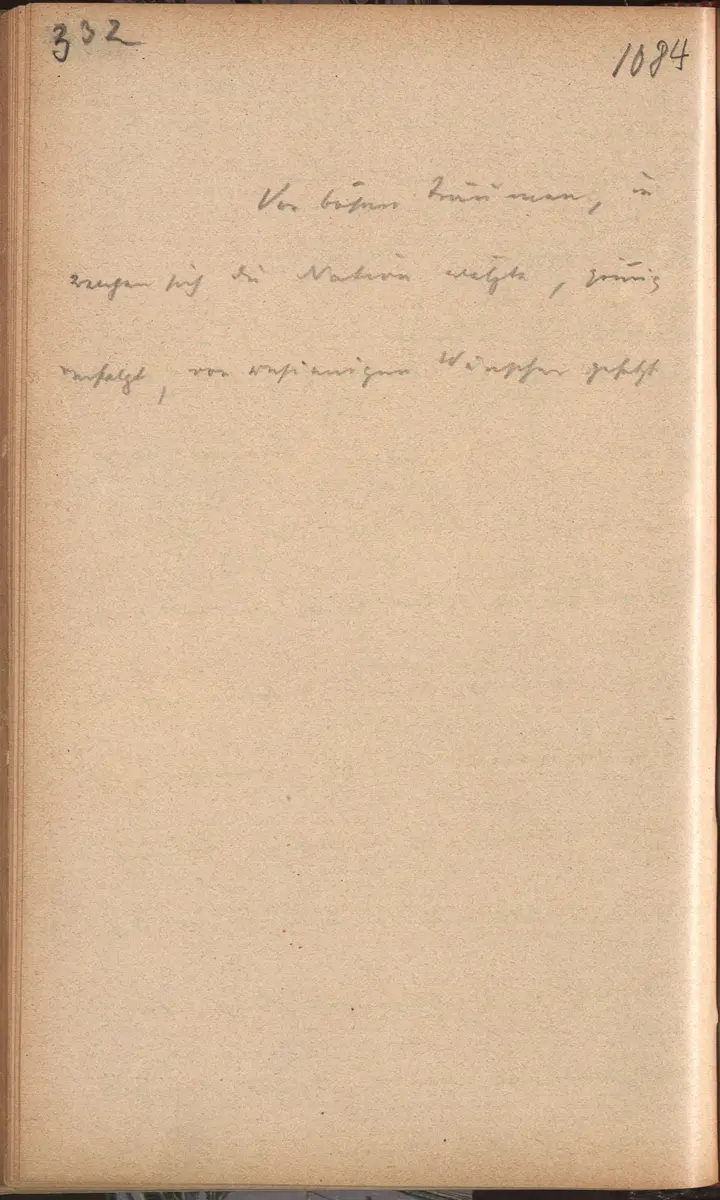 332
1084
Von bösen Träumen, in
welchen sich die Nation wälzte,
verfolgt, von unsinnigen Wünschen gehetzt